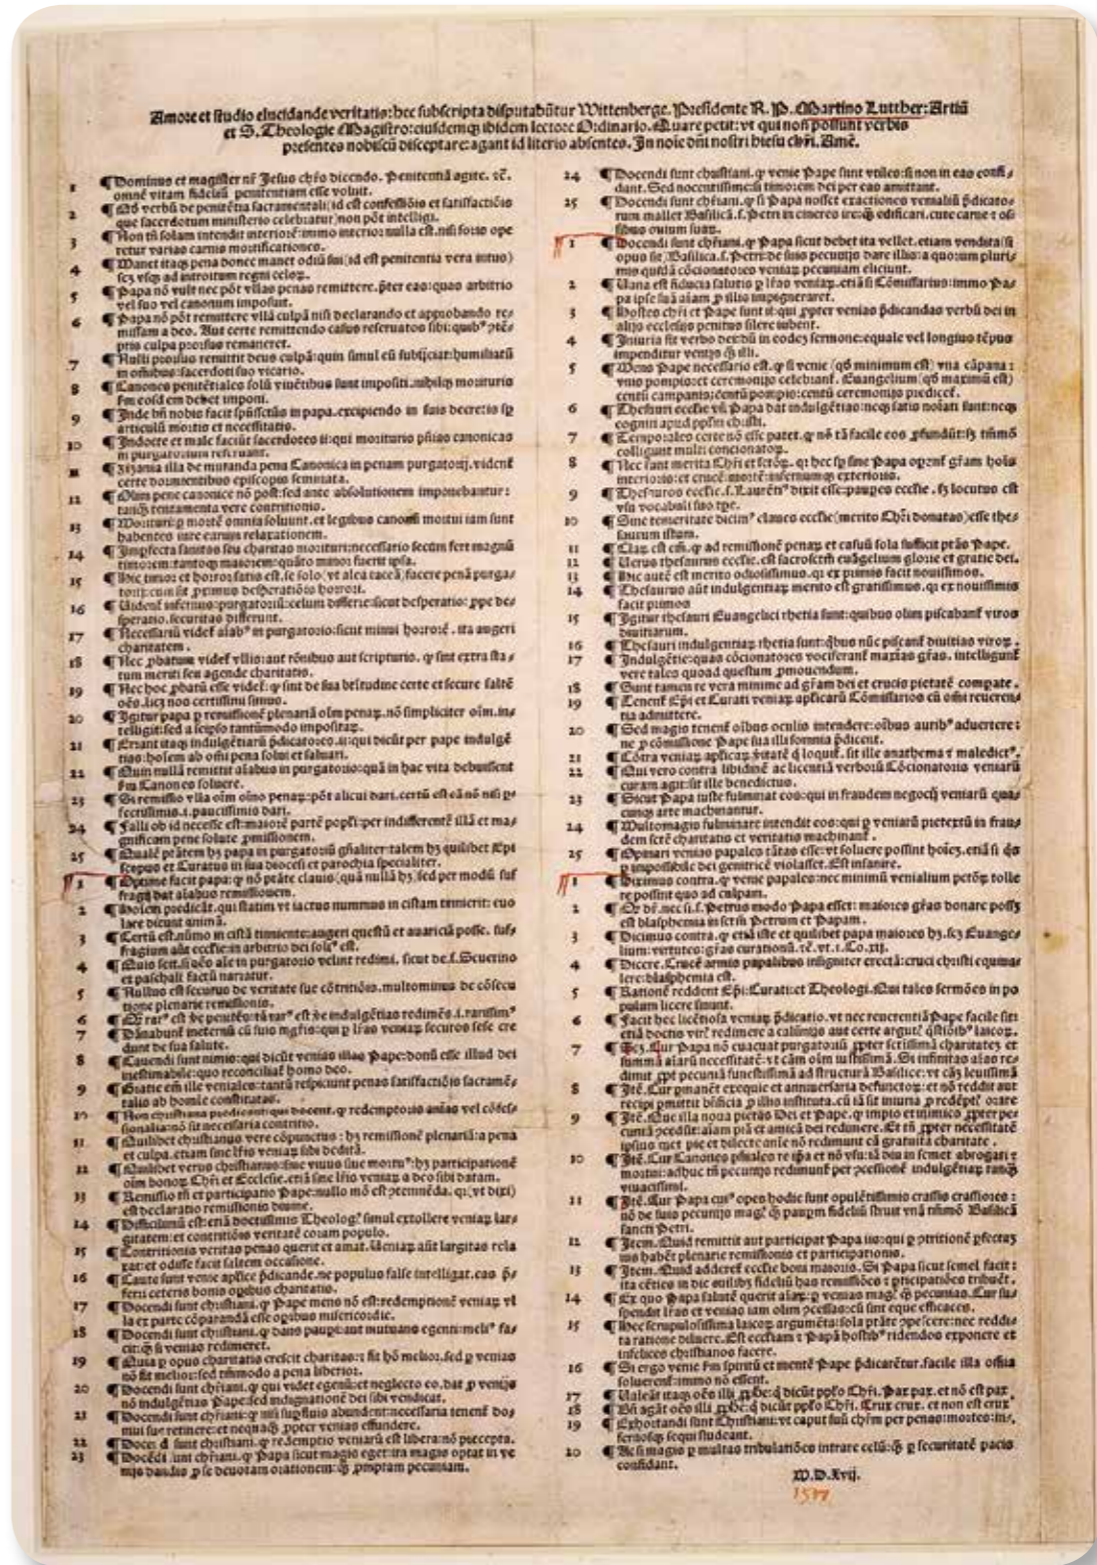 Amore et studio elucidande veritatis: hec subscripta disputabũtur Wittenberge. Presidente R. P. Martino Lutther: Artiũ
et S. Theologie Magistro: eiusdemq; ibidem lectore Ordinario. Quare petit: vt qui non possunt verbis
presentes nobiscũ disceptare: agant id literis absentes. In noĩe dñi nostri hiesu chr̃i. Amẽ.
1 ¶ Dominus et magister nr̃ Jesus chr̃s dicendo. Penitentiã agite. ⁊c̃.
omnẽ vitam fideliũ penitentiam esse voluit.
2 ¶ Qđ verbũ de penitẽtia sacramentali (id est confessiõis et satisfactiõis
que sacerdotum ministerio celebratur) non põt intelligi.
3 ¶ Non tñ solam intendit interiorẽ: immo interior nulla est. nisi foris ope
retur varias carnis mortificationes.
4 ¶ Manet itaq; pena donec manet odiũ sui (id est penitentia vera intus)
scꝫ vsq; ad introitum regni celoꝝ.
5 ¶ Papa nõ vult nec põt vllas penas remittere. p̃ter eas: quas arbitrio
vel suo vel canonum imposuit.
6 ¶ Papa nõ põt remittere vllã culpã nisi declarando et approbando re-
missam a deo. Aut certe remittendo casus reseruatos sibi: quibꝰ ꝯtẽ-
ptis culpa prorsus remaneret.
7 ¶ Nulli prorsus remittit deus culpã: quin simul eũ subijciat: humiliatũ
in omĩbus: sacerdoti suo vicario.
8 ¶ Canones penitẽtiales solũ viuẽtibus sunt impositi. nihilq; morituris
fm eosdem debet imponi.
9 ¶ Inde bñ nobis facit spũssctũs in papa. excipiendo in suis decretis sꝑ
articulũ mortis et necessitatis.
10 ¶ Indocte et male faciũt sacerdotes ij: qui morituris pñias canonicas
in purgatorium reseruant.
11 ¶ Zizania illa de mutanda pena Canonica in penam purgatorij. vident̃
certe dormientibus episcopis seminata.
12 ¶ Olim pene canonice nõ post: sed ante absolutionem imponebantur:
tanq̃ tentamenta vere contritionis.
13 ¶ Morituri: ꝑ mortẽ omnia soluunt. et legibus canonũ mortui iam sunt
habentes iure earum relaxationem.
14 ¶ Imperfecta sanitas seu charitas morituri: necessario secum fert magnũ
timorem: tantoq; maiorem: quãto minor fuerit ipsa.
15 ¶ Hic timor et horror: satis est. se solo (vt alia taceã) facere penã purga-
torij: cum sit ꝓximus desperatiõis horrori.
16 ¶ Vident̃ infernus: purgatoriũ: celum differre: sicut desperatio: ꝓpe des-
peratio. securitas differunt.
17 ¶ Necessariũ videt̃ aĩabꝰ in purgatorio: sicut minui horrorẽ. ita augeri
charitatem.
18 ¶ Nec ꝓbatum videt̃ vllis: aut rõnibus aut scripturis. ꝙ sint extra sta-
tum meriti seu agende charitatis.
19 ¶ Nec hoc ꝓbatũ esse videt̃. ꝙ sint de sua beatitudine certe et secure saltẽ
oẽs. licꝫ nos certissimi simus.
20 ¶ Igitur papa ꝑ remissionẽ plenariã oĩm penaꝝ. nõ simpliciter oĩm. in-
telligit: sed a seipso tantũmodo impositaꝝ.
21 ¶ Errant itaq; indulgẽtiarũ p̃dicatores. ij: qui dicũt per pape indulgẽ
tias: hoĩem ab oĩ pena solui et saluari.
22 ¶ Quin nullã remittit aĩabus in purgatorio: quã in hac vita debuissent
fm Canones soluere.
23 ¶ Si remissio vlla oĩm oĩno penaꝝ: põt alicui dari. certũ est eã nõ nisi ꝑ-
fectissimis. i. paucissimis dari.
24 ¶ Falli ob id necesse est: maiorẽ partẽ popľi: per indifferentẽ illã et ma-
gnificam pene solute ꝓmissionem.
25 ¶ Qualẽ ptãtem hꝫ papa in purgatoriũ gñaliter: talem hꝫ quilibet Epi
scopus et Curatus in sua diocesi et parochia specialiter.
1 ¶ Optime facit papa: ꝙ nõ ptãte clauis (quã nullã hꝫ) sed per modũ suf
fragij dat aĩabus remissionem.
2 ¶ Hoĩem predicãt. qui statim vt iactus nummus in cistam tinnierit: euo
lare dicunt animã.
3 ¶ Certũ est. nũmo in cistã tinniente: augeri questũ et auariciã posse. suf-
fragium aũt ecclie: in arbitrio dei soliꝰ est.
4 ¶ Quis scit. si oẽs aĩe in purgatorio velint redimi. sicut de. s. Seuerino
et paschali factũ narratur.
5 ¶ Nullus est securus de veritate sue cõtritiõis. multominus de cõsecu
tione plenarie remissionis.
6 ¶ Qꝫ rarꝰ est ve̾ penitẽs: tã rarꝰ est ve̾ indulgẽtias redimẽs. i. rarissimꝰ
7 ¶ Dãnabunt̃ ineternũ cũ suis mgr̃is: qui ꝑ lr̃as veniaꝝ securos sese cre
dunt de sua salute.
8 ¶ Cauendi sunt nimis: qui dicũt venias illas Pape: donũ esse illud dei
inestimabile: quo reconciliat̃ homo deo.
9 ¶ Gratie em̃ ille veniales: tantũ respiciunt penas satisfactiõis sacramẽ-
talis ab homĩe constitutas.
10 ¶ Non christiana predicant: qui docent. ꝙ redempturis aĩas vel cõfes-
sionalia: nõ sit necessaria contritio.
11 ¶ Quilibet christianus vere cõpunctus: hꝫ remissionẽ plenariã: a pena
et culpa. etiam sine lr̃is veniaꝝ sibi debitã.
12 ¶ Quilibet verus christianus: siue viuus siue mortuꝰ: hꝫ participationẽ
oĩm bonoꝝ Chr̃i et Ecclesie. etiã sine lr̃is veniaꝝ a deo sibi datam.
13 ¶ Remissio tñ et participatio Pape: nullo mõ est ꝯtemnẽda. qꝛ (vt dixi)
est declaratio remissionis diuine.
14 ¶ Difficilimũ est: etiã doctissimis Theologꝭ simul extollere veniaꝝ lar-
gitatem: et contritiõis veritatẽ coram populo.
15 ¶ Contritionis veritas penas querit et amat. Veniaꝝ aũt largitas rela
xat: et odisse facit saltem occasiõe.
16 ¶ Caute sunt venie aplice p̃dicande. ne populus false intelligat. eas p̃-
ferri ceteris bonis opibus charitatis.
17 ¶ Docendi sunt christiani. ꝙ Pape mens nõ est: redemptionẽ veniaꝝ vl
la ex parte cõparandã esse opibus misericordie.
18 ¶ Docendi sunt christiani. ꝙ dans pauperi: aut mutuans egenti: meliꝰ fa-
cit: ꝙ̃ si venias redimeret.
19 ¶ Quia ꝑ opus charitatis crescit charitas: ⁊ fit hõ melior. sed ꝑ venias
nõ fit melior: sed tm̃modo a pena liberior.
20 ¶ Docendi sunt chr̃iani. ꝙ qui videt egenũ: et neglecto eo. dat ꝑ venijs
nõ indulgẽtias Pape: sed indignationẽ dei sibi vendicat.
21 ¶ Docendi sunt chr̃iani: ꝙ nisi supfluis abundent: necessaria tenent̃ do-
mui sue retinere: et nequaq̃ ꝓpter venias effundere.
22 ¶ Docẽdi sunt christiani. ꝙ redemptio veniarũ est libera: nõ precepta.
23 ¶ Docẽdi sunt chr̃iani. ꝙ Papa sicut magis eget: ita magis optat in ve
nijs dandis ꝓ se deuotam orationem: ꝙ̃ ꝓmptam pecuniam.
24 ¶ Docendi sunt christiani. ꝙ venie Pape sunt vtiles: si non in eas confi-
dant. Sed nocentissime: si timorem dei per eas amittant.
25 ¶ Docendi sunt chr̃iani. ꝙ si Papa nosset exactiones venialiũ p̃dicato-
rum mallet Basilicã. s. Petri in cineres ire: ꝙ̃ edificari. cute carne ⁊ ossi
bus ouium suaꝝ.
1 ¶ Docendi sunt chr̃iani. ꝙ Papa sicut debet ita vellet. etiam vendita (si
opus sit) Basilica. s. Petri: de suis pecunijs dare illis: a quorum pluri-
mis quidã cõcionatores veniaꝝ pecuniam eliciunt.
2 ¶ Vana est fiducia salutis ꝑ lr̃as veniaꝝ. etiã si Cõmissarius: immo Pa-
pa ipse suã aĩam ꝓ illis impigneraret.
3 ¶ Hostes chr̃i et Pape sunt ij: qui ꝓpter venias p̃dicandas verbũ dei in
alijs ecclesijs penitus silere iubent.
4 ¶ Iniuria fit verbo dei: dũ in eodeꝫ sermone: equale vel longius tẽpus
impenditur venijs ꝙ̃ illi.
5 ¶ Mens Pape necessario est. ꝙ si venie (qđ minimum est) vna cãpana:
vnis pompis: et ceremonijs celebrant̃. Euangelium (qđ maximũ est)
centũ campanis: centũ pompis: centũ ceremonijs predicet̃.
6 ¶ Thesauri ecclie vñ Papa dat indulgẽtias: neq; satis noĩati sunt: neq;
cogniti apud ppľm christi.
7 ¶ Temporales certe nõ esse patet. ꝙ nõ tã facile eos ꝓfundũt: sꝫ tm̃mõ
colligunt multi concionatoꝝ.
8 ¶ Nec sunt merita Chr̃i et sctõꝝ. qꝛ hec sꝑ sine Papa operant̃ gr̃am hoĩs
interioris: et crucẽ: mortẽ: infernumq; exterioris.
9 ¶ Thesauros ecclie. s. Laurẽtꝰ dixit esse: pauperes ecclie. sꝫ locutus est
vsu vocabuli suo tpe.
10 ¶ Sine temeritate dicimꝰ claues ecclie (merito Chr̃i donatas) esse the-
saurum istum.
11 ¶ Claꝝ est em̃. ꝙ ad remissionẽ penaꝝ et casuũ sola sufficit ptãs Pape.
12 ¶ Verus thesaurus ecclie. est sacrosctm̃ euãgelium glorie et gratie dei.
13 ¶ Hic autẽ est merito odiosissimus. qꝛ ex primis facit nouissimos.
14 ¶ Thesaurus aũt indulgentiaꝝ merito est gratissimus. qꝛ ex nouissimis
facit primos
15 ¶ Igitur thesauri Euangelici rhetia sunt: quibus olim piscabant̃ viros
diuitiarum.
16 ¶ Thesauri indulgentiaꝝ rhetia sunt: q̃bus nũc piscant̃ diuitias viroꝝ.
17 ¶ Indulgẽtie: quas cõcionatores vociferant̃ maxĩas gr̃as. intelligunt̃
vere tales quoad questum ꝓmouendum.
18 ¶ Sunt tamen re vera minime ad gr̃am dei et crucis pietatẽ compate.
19 ¶ Tenent̃ Ep̃i et Curati veniaꝝ aplicarũ Cõmissarios cũ oĩ reueren-
tia admittere.
20 ¶ Sed magis tenent̃ oĩbus oculis intendere: oĩbus auribꝰ aduertere:
ne ꝓ cõmissione Pape sua illi somnia p̃dicent.
21 ¶ Cõtra veniaꝝ aplicaꝝ v̾itatẽ q̃ loquit̃. sit ille anathema ⁊ maledictꝰ.
22 ¶ Qui vero contra libidinẽ ac licentiã verborũ Cõcionatoris veniarũ
curam agit: sit ille benedictus.
23 ¶ Sicut Papa iuste fulminat eos: qui in fraudem negocij veniarũ qua-
cunq; arte machinantur.
24 ¶ Multomagis fulminare intendit eos: qui ꝑ veniarũ pretextũ in frau-
dem sctẽ charitatis et veritatis machinant̃.
25 ¶ Opinari venias papales tãtas esse: vt soluere possint hoĩeꝫ. etiã si q̃s
ꝑ impossibile dei genitricẽ violasset. Est insanire.
1 ¶ Diximus contra. ꝙ venie papales: nec minimũ venialium petõꝝ tolle
re possint quo ad culpam.
2 ¶ Qꝙ dr̃. nec si. s. Petrus modo Papa esset: maiores gr̃as donare possꝫ
est blasphemia in sctm̃ Petrum et Papam.
3 ¶ Dicimus contra. ꝙ etiã iste et quilibet papa maiores hꝫ. scꝫ Euange-
lium: virtutes: gr̃as curationũ. ⁊c̃. vt. 1. Co. xij.
4 ¶ Dicere. Crucẽ armis papalibus insigniter erectã: cruci christi equiua-
lere: blasphemia est.
5 ¶ Rationẽ reddent Ep̃i: Curati: et Theologi. Qui tales sermões in po
pulum licere sinunt.
6 ¶ Facit hec licẽtiosa veniaꝝ p̃dicatio. vt nec reuerentiã Pape facile sit:
etiã doctis virꝭ redimere a calũnijs aut certe argutꝭ q̃stiõibꝰ laicoꝝ.
7 ¶ Scꝫ. Cur Papa nõ euacuat purgatoriũ ꝓpter sctissimã charitateꝫ et
summã aĩarũ necessitatẽ: vt cãm oĩm iustissimã. Si infinitas aĩas re-
dimit ꝓpt̾ pecuniã funestissimã ad structurã Basilice: vt cãꝫ leuissimã
8 ¶ Itẽ. Cur ꝑmanẽt exequie et anniuersaria defunctoꝝ: et nõ reddit aut
recipi ꝑmittit bñficia ꝓ illis instituta. cũ iã sit iniuria ꝓ redẽptꝭ orare
9 ¶ Itẽ. Que illa noua pietas Dei et Pape. ꝙ impio et inimico ꝓpter pe-
cuniã ꝯcedũt: aĩam piã et amicã dei redimere. Et tñ ꝓpter necessitatẽ
ipsius met pie et dilecte aĩe nõ redimunt eã gratuita charitate.
10 ¶ Itẽ. Cur Canones pñiales re ip̃a et nõ vsu: iã diu in semet abrogati ⁊
mortui: adhuc tñ pecunijs redimunt̃ per ꝯcessionẽ indulgẽtiaꝝ tanq̃
viuacissimi.
11 ¶ Itẽ. Cur Papa cuiꝰ opes hodie sunt opulẽtissimis crassis crassiores:
nõ de suis pecunijs magꝭ ꝙ̃ pauꝑum fideliũ struit vnã tm̃mõ Basilicã
sancti Petri.
12 ¶ Item. Quid remittit aut participat Papa ijs: qui ꝑ ꝯtritionẽ ꝑfectaꝫ
ius habẽt plenarie remissionis et participationis.
13 ¶ Item. Quid adderet̃ ecclie boni maioris. Si Papa sicut semel facit:
ita cẽties in die cuilibꝫ fideliũ has remissiões ⁊ ꝑticipatiões tribuẽt.
14 ¶ Ex quo Papa salutẽ querit aĩaꝝ: ꝑ venias magꝭ ꝙ̃ pecunias. Cur su-
spendit lr̃as et venias iam olim ꝯcessas: cũ sint eque efficaces.
15 ¶ Hec scrupulosissima laicoꝝ argumẽta: sola ptãte ꝯpescere: nec reddi-
ta ratione diluere. Est ecclesiam ⁊ Papã hostibꝰ ridendos exponere et
infelices christianos facere.
16 ¶ Si ergo venie fm spiritũ et mentẽ Pape p̃dicarẽtur. facile illa omĩa
soluerent̃: immo nõ essent.
17 ¶ Valeãt itaq; oẽs illi ꝓphe: q̃ dicũt ppľo Chr̃i. Pax pax. et nõ est pax.
18 ¶ Bñ agãt oẽs illi ꝓphe: q̃ dicũt ppľo Chr̃i. Crux crux. et non est crux
19 ¶ Exhortandi sunt Christiani: vt caput suũ chr̃m per penas: mortes: in-
fernosq; sequi studeant.
20 ¶ Ac si magis ꝑ multas tribulatiões intrare celũ: ꝙ̃ ꝑ securitatẽ pacis
confidant.
M.D.Xvij.
1517